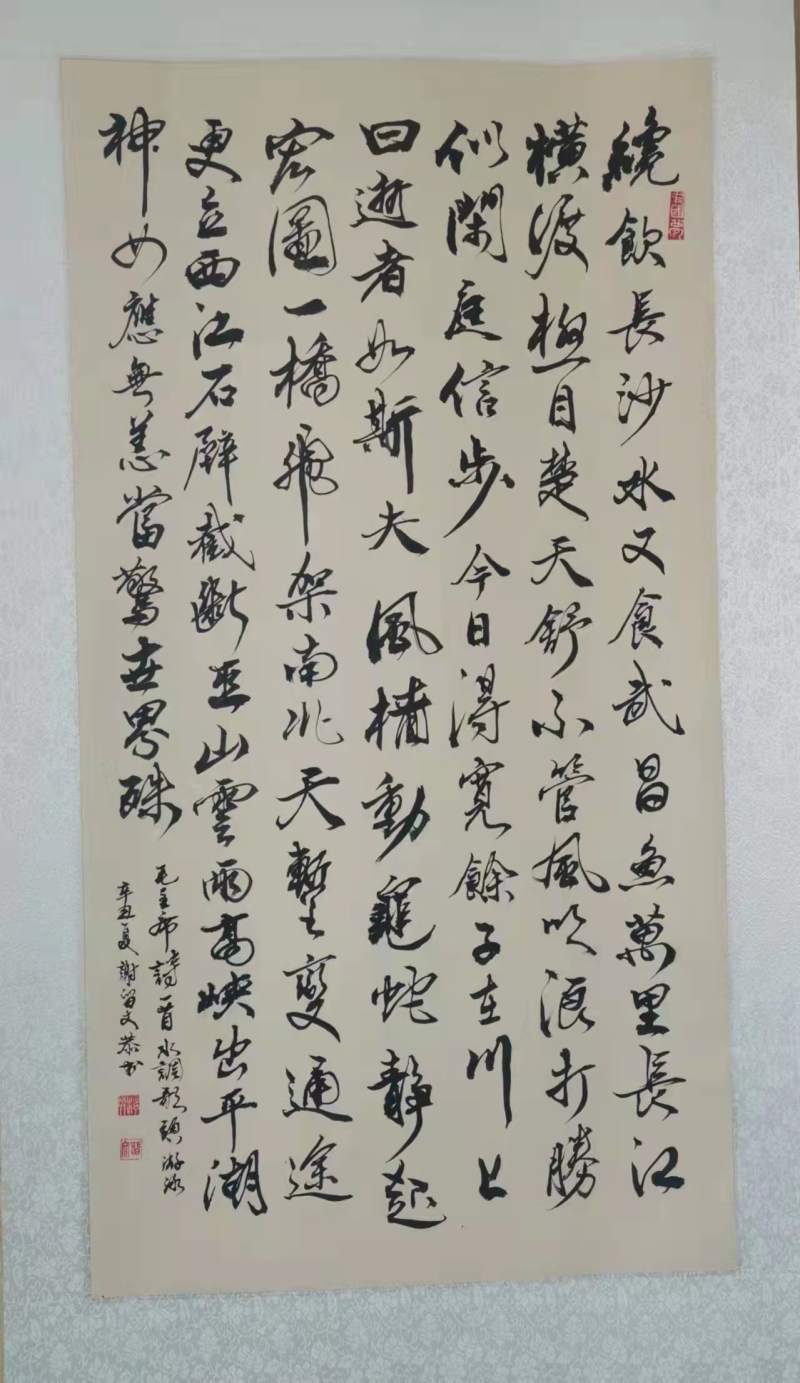 纔飲長沙水又食武昌魚萬里長江
橫渡極目楚天舒不管風吹浪打勝
似閑庭信步今日得寬餘子在川上
曰逝者如斯夫風檣動龜蛇靜起
宏圖一橋飛架南北天塹變通途
更立西江石壁截斷巫山雲雨高峽出平湖
神女應無恙當驚世界殊
毛主席詩一首水調歌頭游泳
辛丑夏謝留文恭书